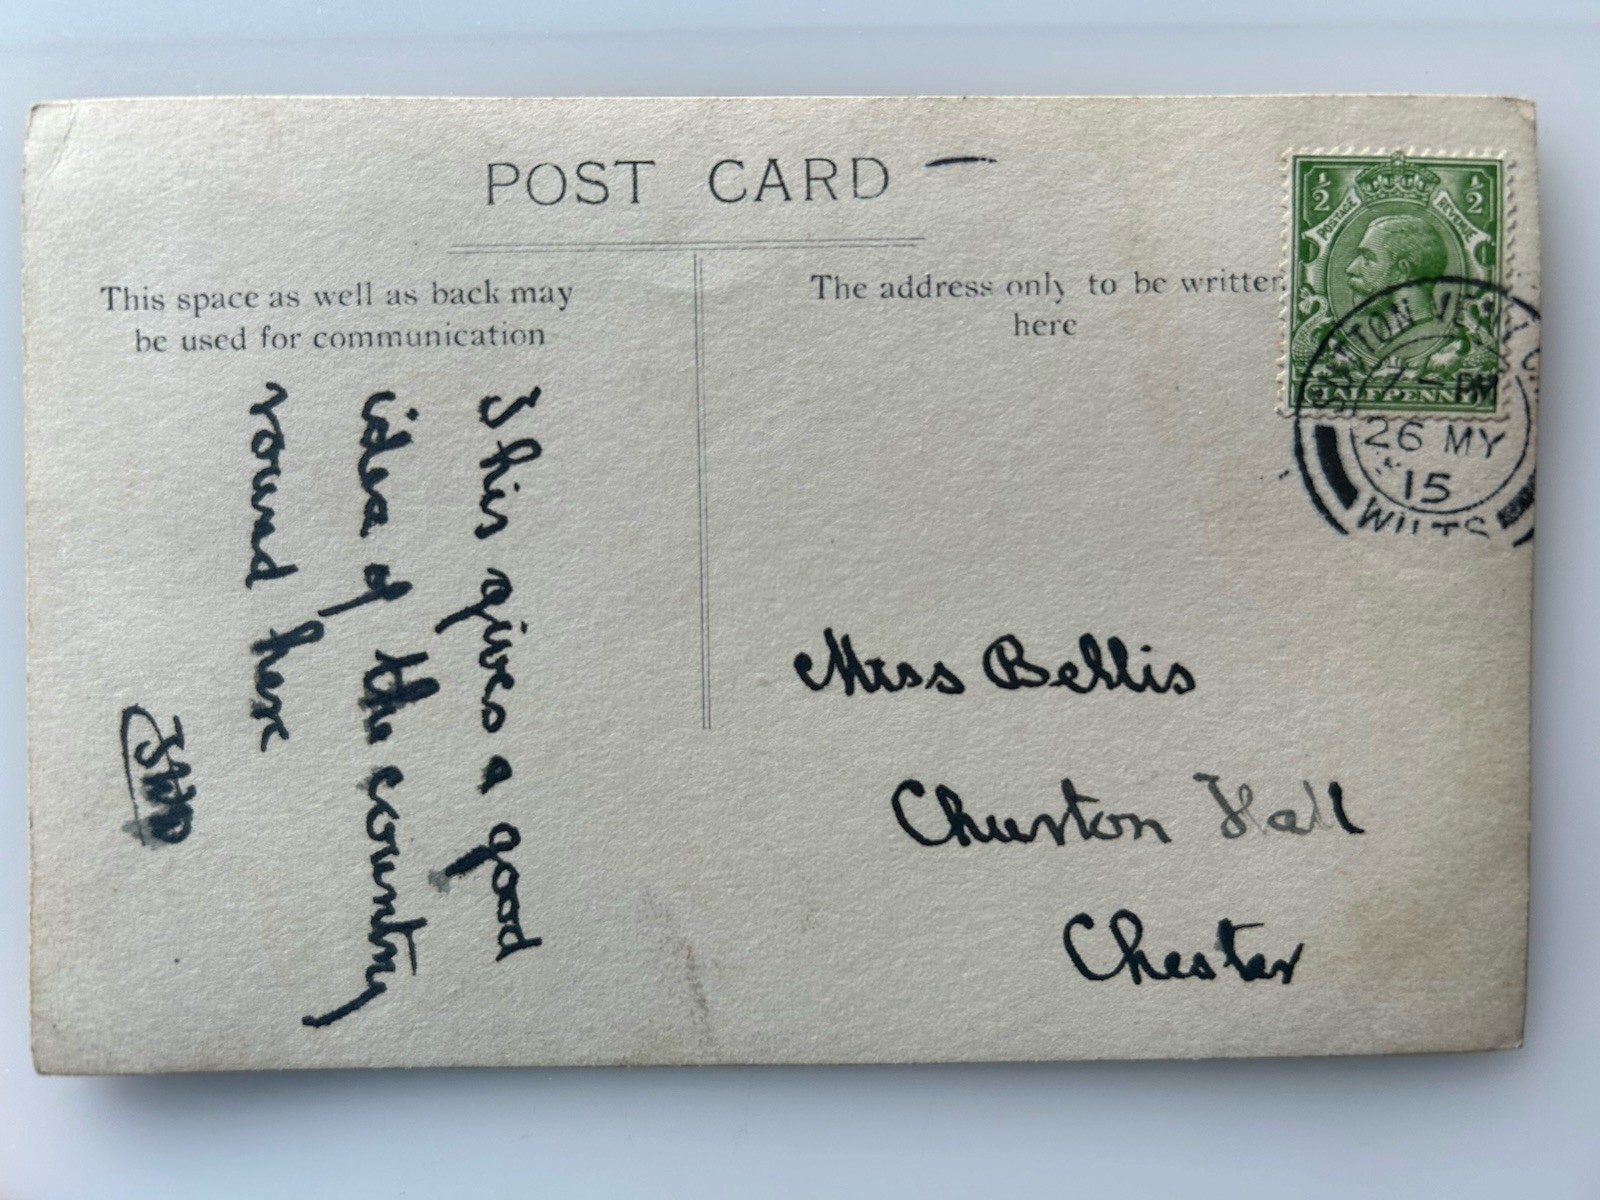 POST CARD
This space as well as back may
be used for communication
The address only to be written
here
½ ½
POSTAGE REVENUE
HALFPENNY
SUTTON VENY
7 - PM
26 MY
15
WILTS
This gives a good
idea of the country
round here
Miss Bellis
Churton Hall
Chester